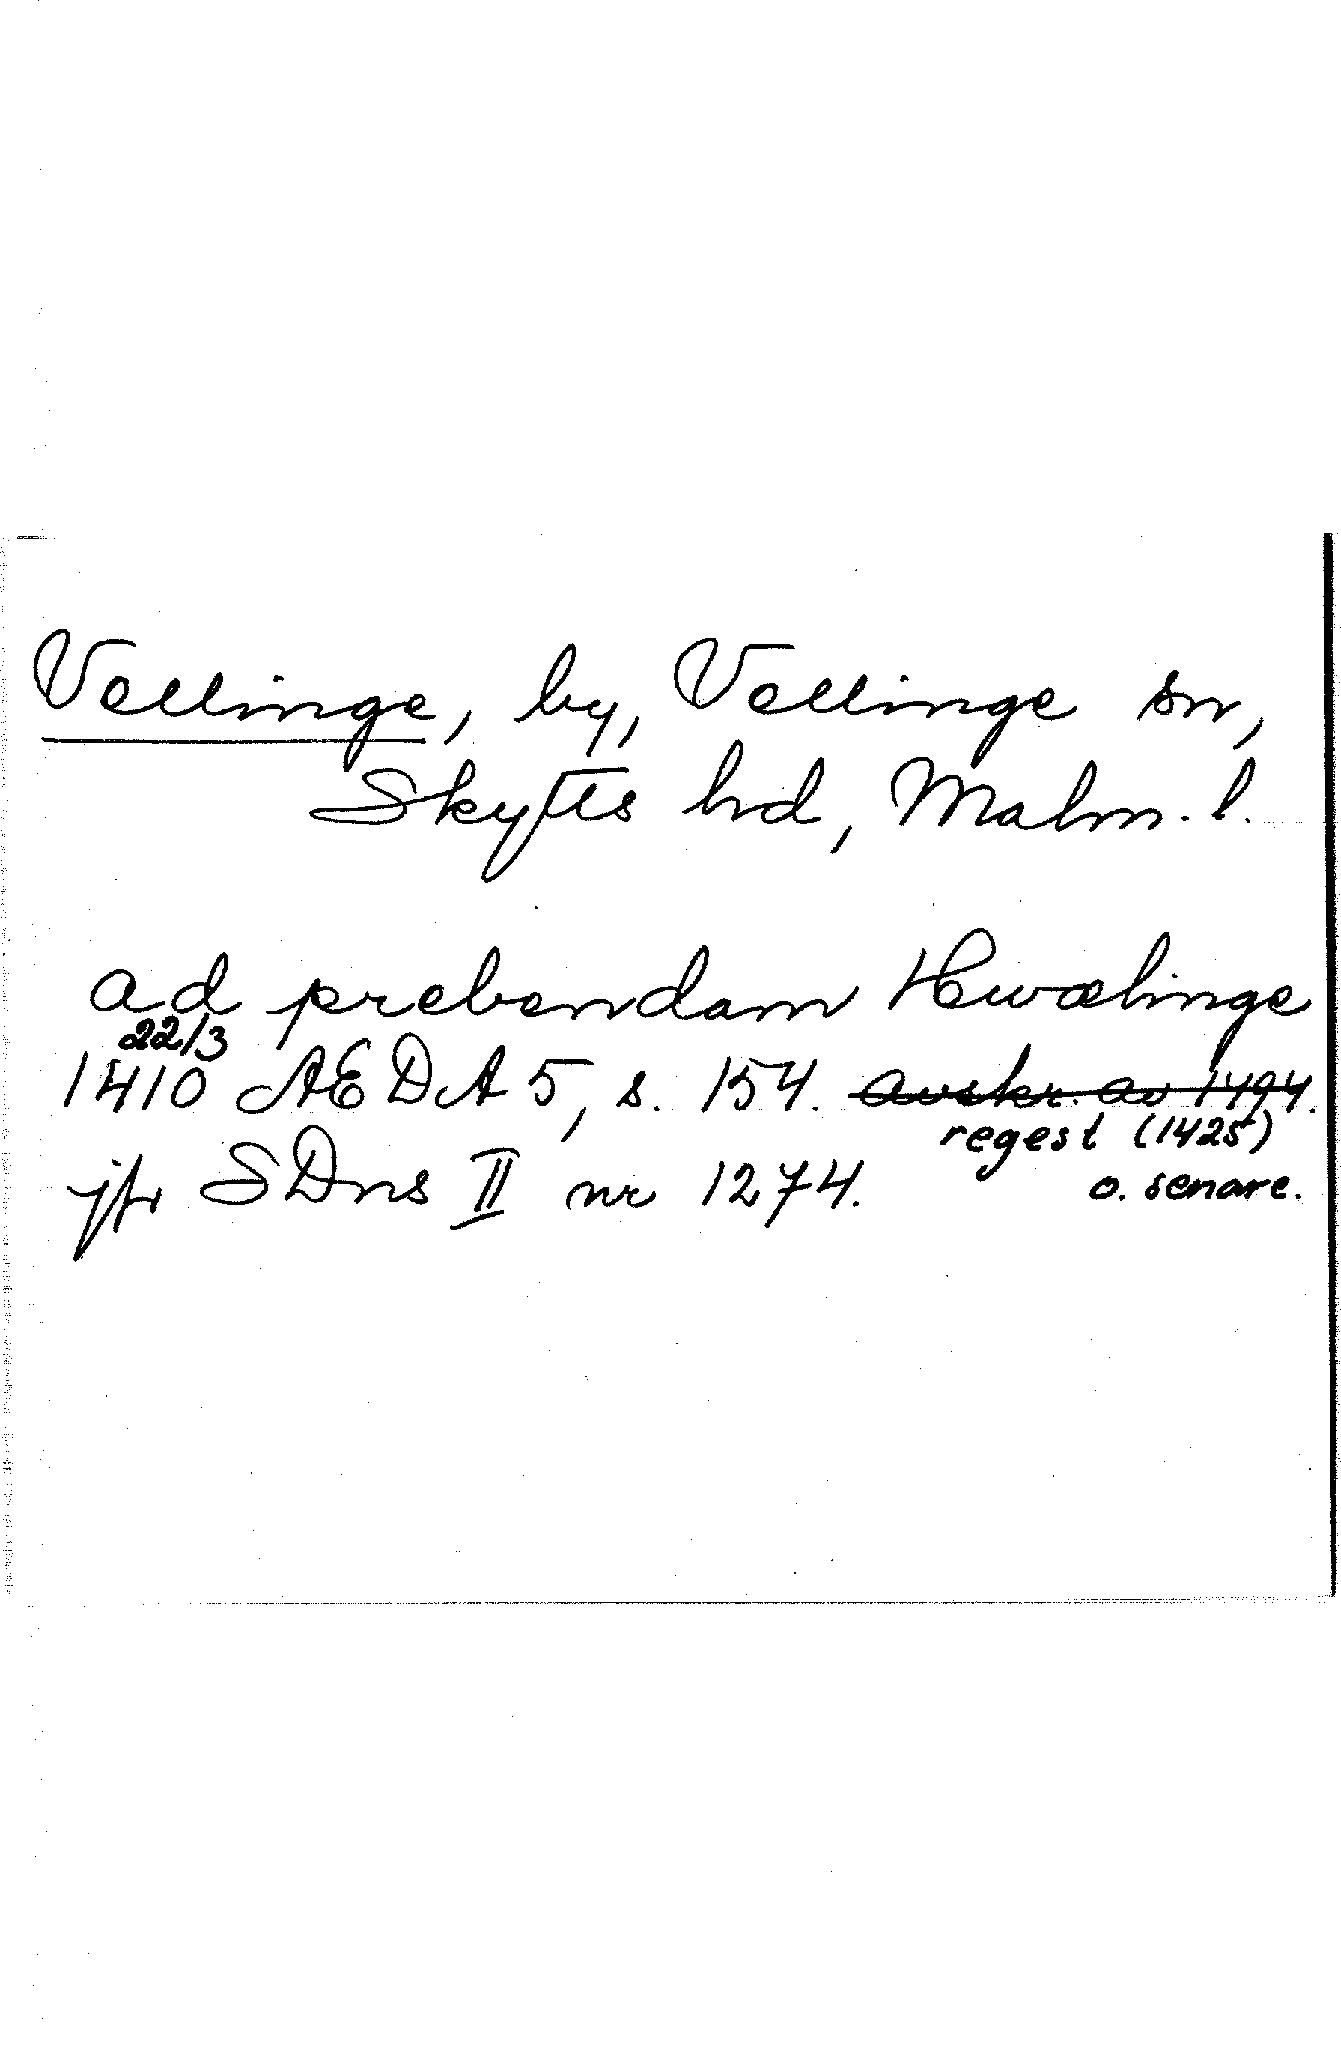 Vellinge, by, Vellinge sn,
Skytts hd, Malm. l.
ad prebendam Hwælinge
22/3
1410 AEDA 5, s. 154. avskr. av 1494.
regest (1425)
jfr SDns II nr 1274. o. senare.